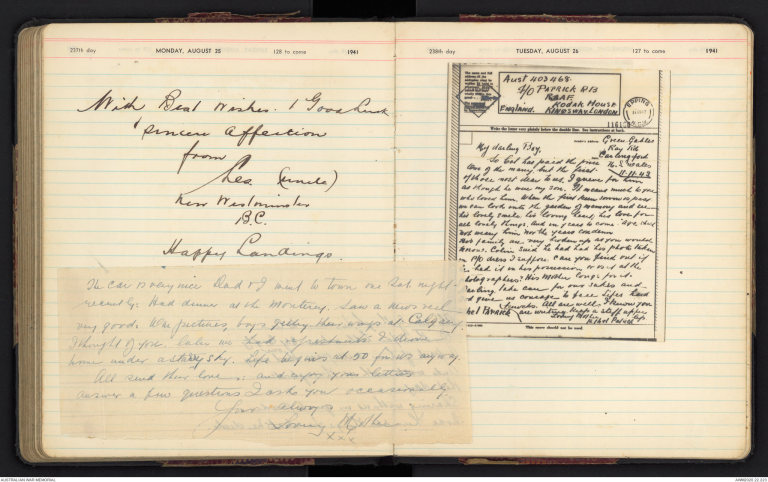 237th day MONDAY, AUGUST 25 128 to come 1941
With Best Wishes. & Good Luck
& sincere affection
from
(uncle)
New Westminster
B.C.
Happy Landings.
The car is very nice Dad & I went to town one Sat night
recently. Had dinner at the Monterey. Saw a news reel
very good. War pictures, boys getting their wings at Calgary.
I thought of you. Later we had refreshments & drove
home under a sky. Life begins at 50 for us anyway.
All send their love, and enjoy your letters
answer a few questions I asks you occasionally
Your Always
Loving Mother
xxx
238th day TUESDAY, AUGUST 26 127 to come 1941
Aust 403468
F/O PATRICK R B
RAAF.
KODAK HOUSE
ENGLAND. KINGSWAY. LONDON
EPPING
Write the letter very plainly below the double line. See instructions at back.
Sender's address
Green Gables
Ray Rd
Carlingford
N.S. Wales
11-11-43
My darling Boy,
So Col has paid the price
one of the many, but the first
of those most dear to us. I grieve for him
as though he were my son. It means much to you
who loves him. When the first keen sorrow is past
we can look into the garden of memory and see
his lovely smile his loving heart, his love for
all lovely things. And in years to come Age shall
not weary him nor the years condemn
His family are very broken up as you would
know. Colin said he had had his photo taken
in F/O dress I suppose. Can you find out if
he had it in his possession or is it at the
photographers? His Mother longs for it.
Darling take care for our sakes and
God give us courage to face life's hard
knocks. All are well & I know you
are writing. Keep a stiff upper lip
Loving Mother
Ethel Patrick
This space should not be used.
AUSTRALIAN WAR MEMORIAL